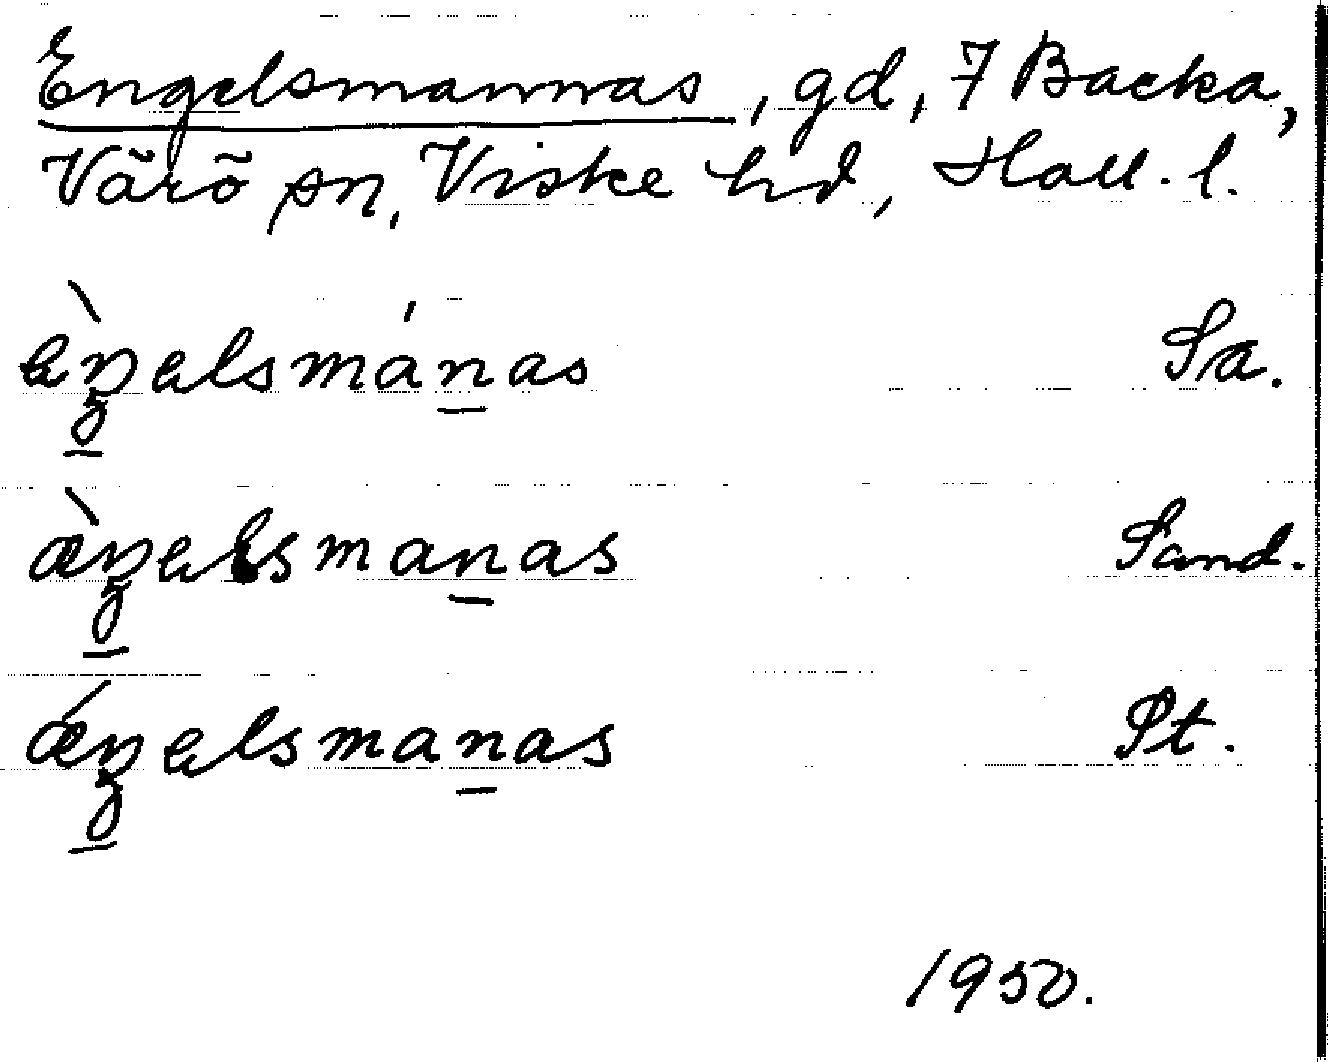 Engelsmannas, gd, 7 Backa,
Värö sn, Viske hd, Hall. l.
èŋelsmánas Sa.
æ̀ŋelsmanas Sand.
ǽŋelsmanas St.
1950.